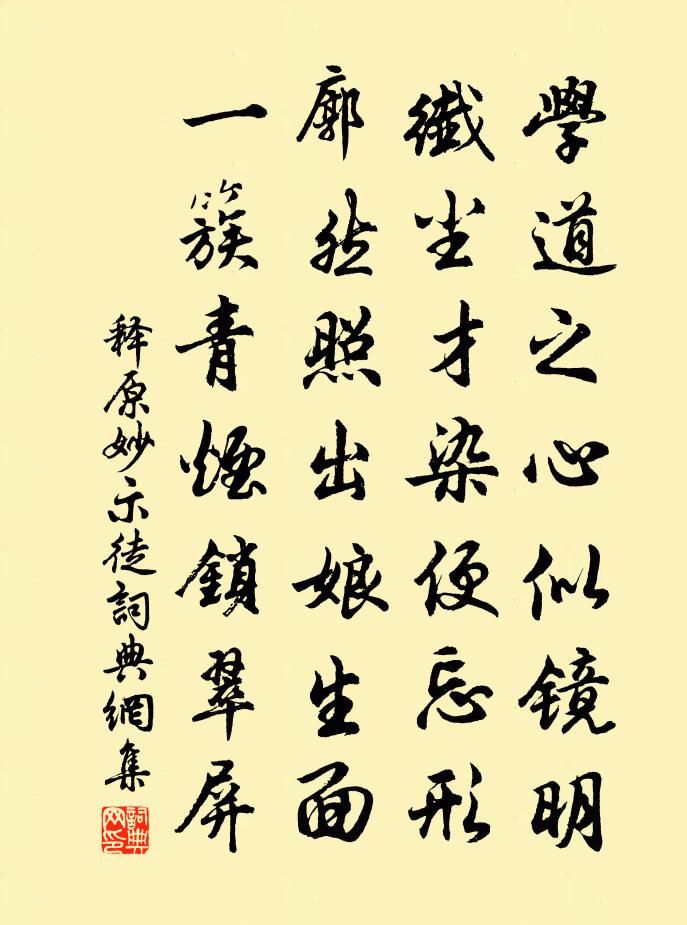 學道之心似镜明
纖尘才染便忘形
廓然照出娘生面
一簇青煙鎖翠屏
释原妙示徒詞典網集
詞典
网印